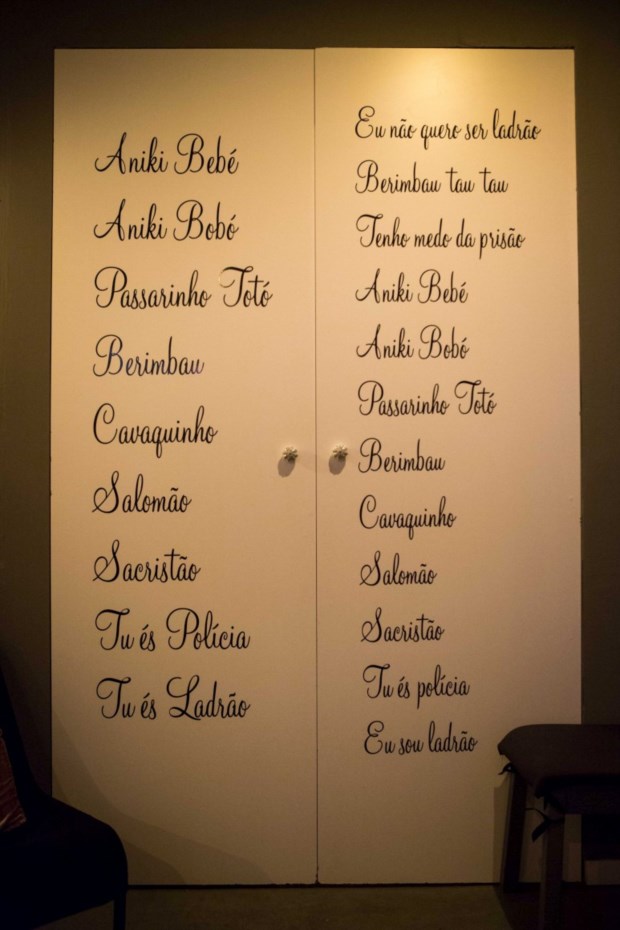 Aniki Bebé
Aniki Bobó
Passarinho Totó
Berimbau
Cavaquinho
Salomão
Sacristão
Tu és Polícia
Tu és Ladrão
Eu não quero ser ladrão
Berimbau tau tau
Tenho medo da prisão
Aniki Bebé
Aniki Bobó
Passarinho Totó
Berimbau
Cavaquinho
Salomão
Sacristão
Tu és polícia
Eu sou ladrão